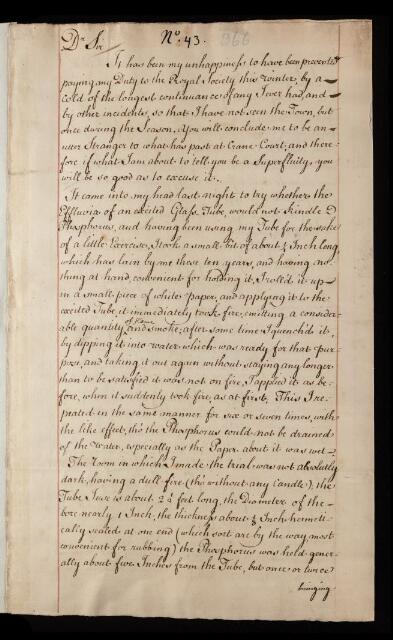 Dr Sr No. 43. 366
It has been my unhappiness to have been prevented
paying my Duty to the Royal Society this Winter, by a
Cold of the longest continuance of any I ever had, and
by other incidents, so that I have not seen the Town, but
once during the Season, You will conclude me to be an
utter Stranger to what has past at Crane Court; and there-
fore if what I am about to tell you be a Superfluity, you
will be so good as to excuse it.
It came into my head last night to try whether the
Effluvia of an excited Glass Tube, would not kindle
Phosphorus, and having been using my Tube for the sake
of a little Exercise, I took a small bit of about ½ Inch long,
which has lain by me these ten years, and having no-
thing at hand, convenient for holding it, I roll'd it up
in a small piece of white Paper, and applying it to the
excited Tube it immediately took fire, emitting a consider-
able quantity of flame and smoke; after some time I quenched it,
by dipping it into water which was ready for that pur-
pose, and taking it out again without staying any longer
than to be satisfied it was not on fire, I applied it as be-
fore, when it suddenly took fire, as at first. This I re-
peated in the same manner for six or seven times, with
the like effect, tho' the Phosphorus could not be drained
of the Water, especially as the Paper about it was wet.
The Room in which I made the trial was not absolutely
dark, having a dull fire (tho' without any Candle), the
Tube I use is about 2½ feet long, the Diameter of the
bore nearly 1 Inch, the thickness about Inch hermeti-
cally sealed at one end (which sort are by the way most
convenient for rubbing) the Phosphorus was held gener-
ally about five Inches from the Tube, but once or twice
bringing